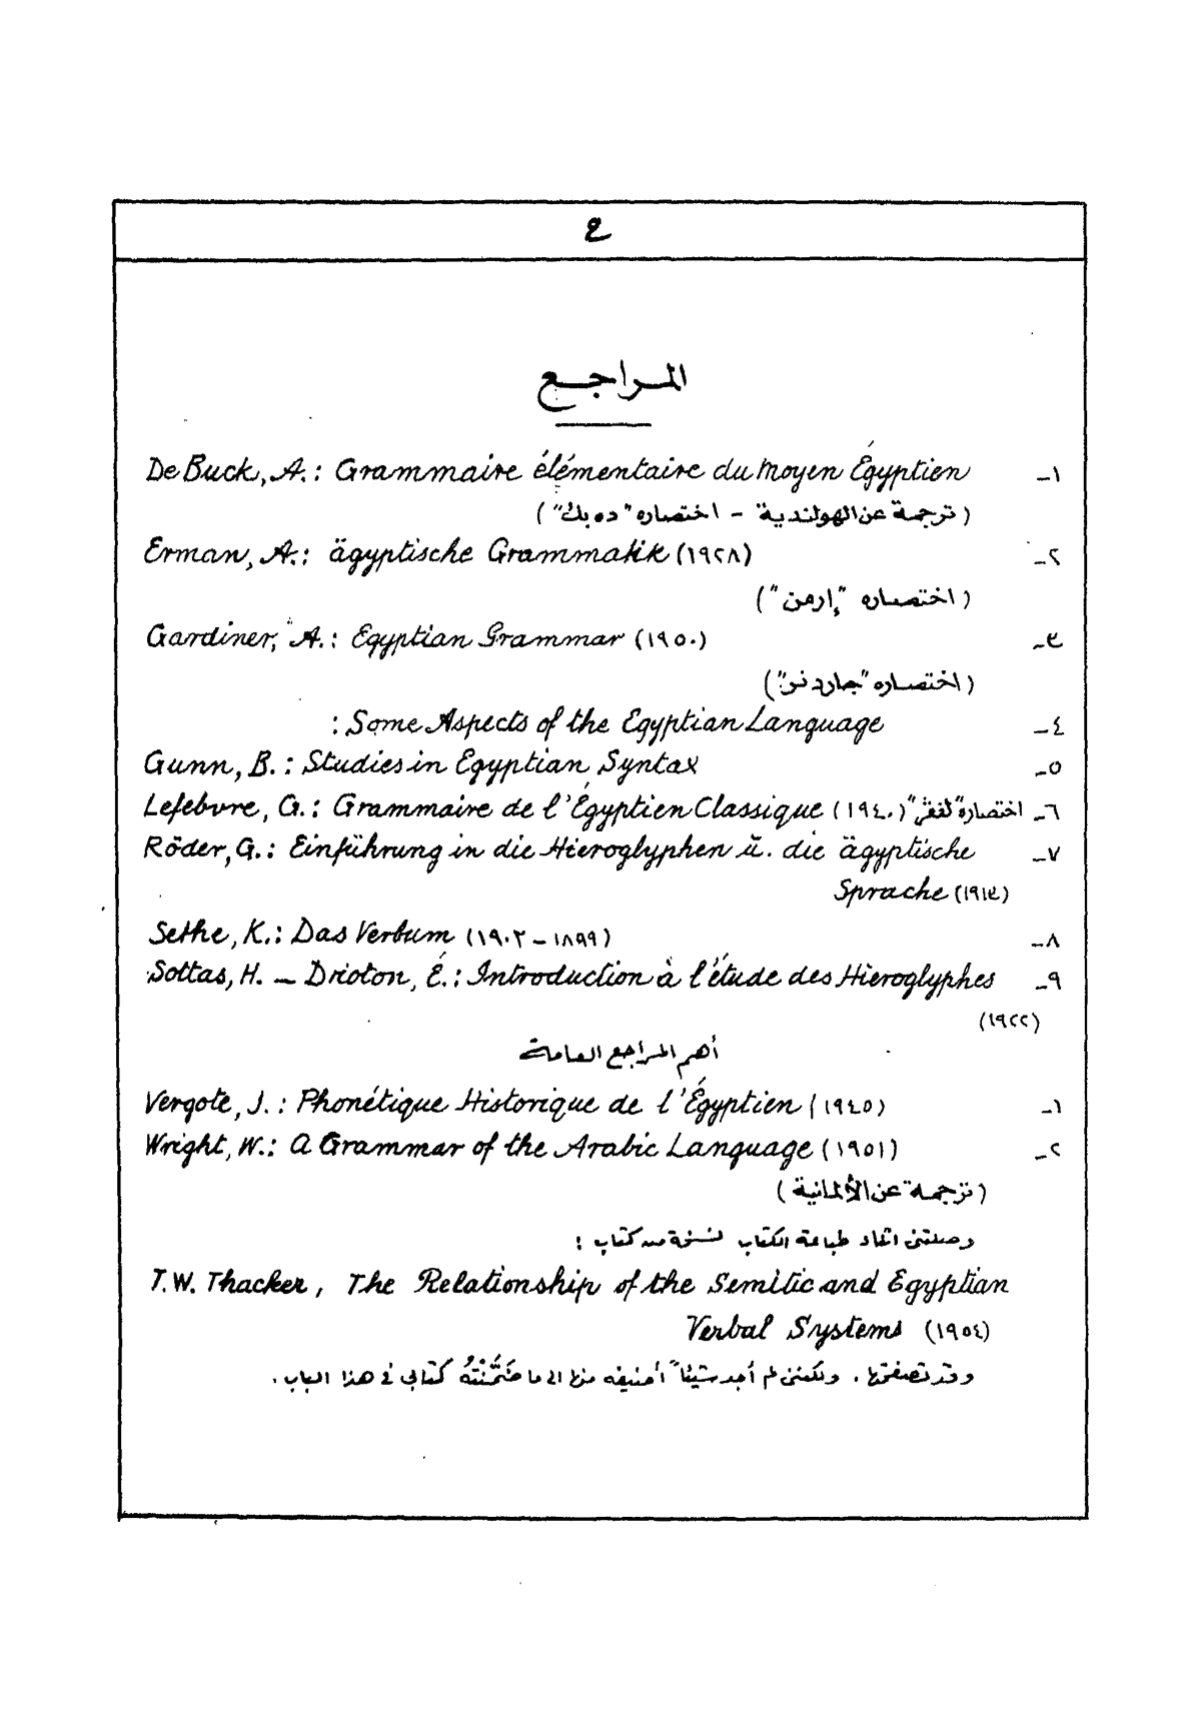 ع
المراجع
١- De Buck, A.: Grammaire élémentaire du moyen Égyptien
(ترجمة عن الهولندية - اختصاره "ده بك")
٢- Erman, A.: ägyptische Grammatik (١٩٢٨)
(اختصاره "إرمن")
٣- Gardiner, A.: Egyptian Grammar (١٩٥٠)
(اختصاره "جاردنر")
٤- : Some Aspects of the Egyptian Language
٥- Gunn, B.: Studies in Egyptian Syntax
٦- Lefebvre, G.: Grammaire de l'Égyptien Classique (١٩٤٠) اختصاره "لفڤر"
٧- Röder, G.: Einführung in die Hieroglyphen ŭ. die ägyptische
Sprache (١٩١٣)
٨- Sethe, K.: Das Verbum (١٨٩٩ - ١٩٠٢)
٩- Sottas, H. - Drioton, É.: Introduction à l'étude des Hieroglyphes
(١٩٢٢)
أهم المراجع العامة
١- Vergote, J.: Phonétique Historique de l'Égyptien (١٩٤٥)
٢- Wright, W.: A Grammar of the Arabic Language (١٩٥١)
(ترجمة عن الألمانية)
وصلتنى اثناء طباعة الكتاب نسخة من كتاب :
T.W. Thacker, The Relationship of the Semitic and Egyptian
Verbal Systems (١٩٥٤)
وقد تصفحتها. ولكننى لم أجد شيئاً أضيفه منها الى ما ضَمَّنْتُهُ كتابي في هذا الباب.